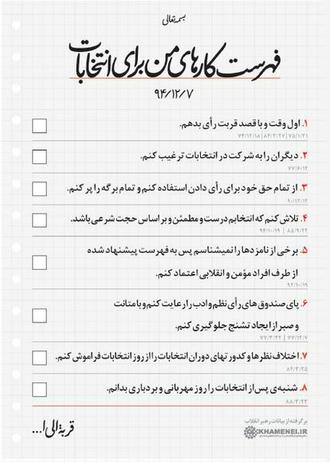 بسمه‌تعالی
فهرست کارهای من برای انتخابات
۹۴/۱۲/۷
۱. اول وقت و با قصد قربت رأی بدهم.
۲. دیگران را به شرکت در انتخابات ترغیب کنم.
۳. از تمام حق خود برای رأی دادن استفاده کنم و تمام برگه را پر کنم.
۴. تلاش کنم که انتخابم درست و مطمئن و بر اساس حجت شرعی باشد.
۵. برخی از نامزدها را نمیشناسم پس به فهرست پیشنهاد شده
از طرف افراد مؤمن و انقلابی اعتماد کنم.
۶. پای صندوق‌های رأی نظم و ادب را رعایت کنم و با متانت
و صبر از ایجاد تشنج جلوگیری کنم.
۷. اختلاف نظرها و کدورتهای دوران انتخابات را از روز انتخابات فراموش کنم.
۸. شنبه‌ی پس از انتخابات را روز مهربانی و بردباری بدانم.
برگرفته از بیانات رهبر انقلاب
KHAMENEI.IR
قربة الی ا...